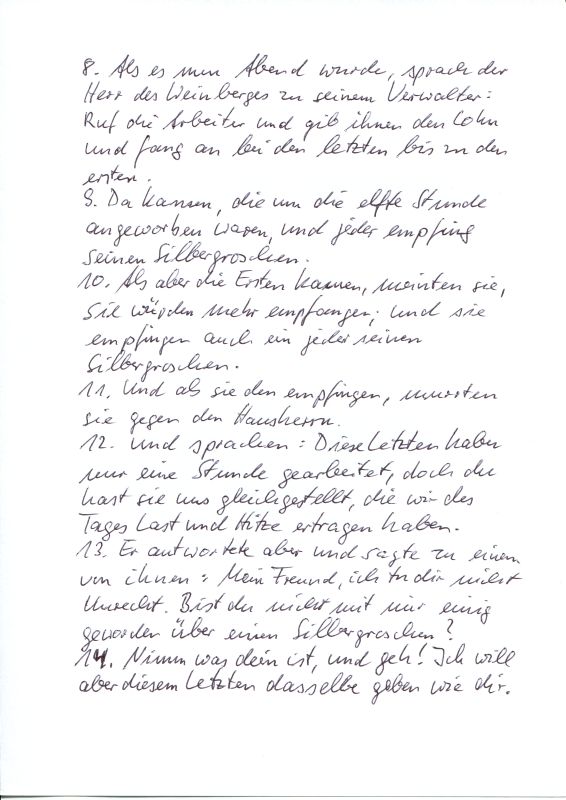 8. Als es nun Abend wurde, sprach der
Herr des Weinberges zu seinem Verwalter:
Ruf die Arbeiter und gib ihnen den Lohn
und fang an bei den letzten bis zu den
ersten.
9. Da kamen, die um die elfte Stunde
angeworben waren, und jeder empfing
seinen Silbergroschen.
10. Als aber die Ersten kamen, meinten sie,
sie würden mehr empfangen; und sie
empfingen auch ein jeder seinen
Silbergroschen.
11. Und als sie den empfingen, murrten
sie gegen den Hausherrn.
12. Und sprachen: Diese Letzten haben
nur eine Stunde gearbeitet, doch du
hast sie uns gleichgestellt, die wir des
Tages Last und Hitze ertragen haben.
13. Er antwortete aber und sagte zu einem
von ihnen: Mein Freund, ich tu dir nicht
Unrecht. Bist du nicht mit mir einig
geworden über einen Silbergroschen?
14. Nimm was dein ist, und geh! Ich will
aber diesem Letzten dasselbe geben wie dir.